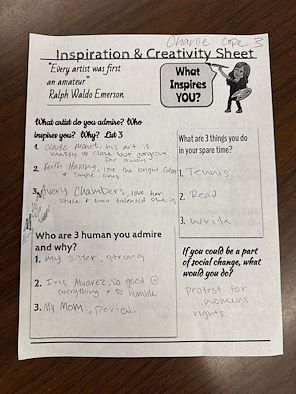 Charlie Cope 3
Inspiration & Creativity Sheet
"Every artist was first
an amateur"
Ralph Waldo Emerson
What
Inspires
YOU?
What artist do you admire? Who
inspires you? Why? List 3
1. Claude Monet, his art is
messy up close but gorgeous
far away
2. Keith Haring, love the bright colors
+ simple lines
3. Avery Chambers, love her
style + how talented she is
Who are 3 human you admire
and why?
1. my sister, strong
2. Iris Alvarez, so good @
everything + so humble
3. My Mom, period.
What are 3 things you do
in your spare time?
1. Tennis
2. Read
3. write
If you could be a part
of social change, what
would you do?
Protest for
womens
rights